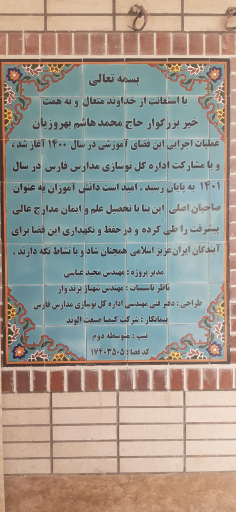 بسمه تعالی
با استعانت از خداوند متعال و به همت
خیر بزرگوار حاج محمد هاشم بهروزیان
عملیات اجرایی این فضای آموزشی در سال ۱۴۰۰ آغاز شد ،
و با مشارکت اداره کل نوسازی مدارس فارس در سال
۱۴۰۱ به پایان رسید . امید است دانش آموزان به عنوان
صاحبان اصلی این بنا با تحصیل علم و ایمان مدارج عالی
پیشرفت را طی کرده و در حفظ و نگهداری این فضا برای
آیندگان ایران عزیز اسلامی همچنان شاد و با نشاط نگه دارند .
مدیر پروژه : مهندس مجید عباسی
ناظر تاسیسات : مهندس شهناز برند وار
طراحی : دفتر فنی مهندسی اداره کل نوسازی مدارس فارس
پیمانکار : شرکت کیمیا صنعت الوند
تیپ : متوسطه دوم
کد فضا : ۱۷۴۰۳۵۰۵